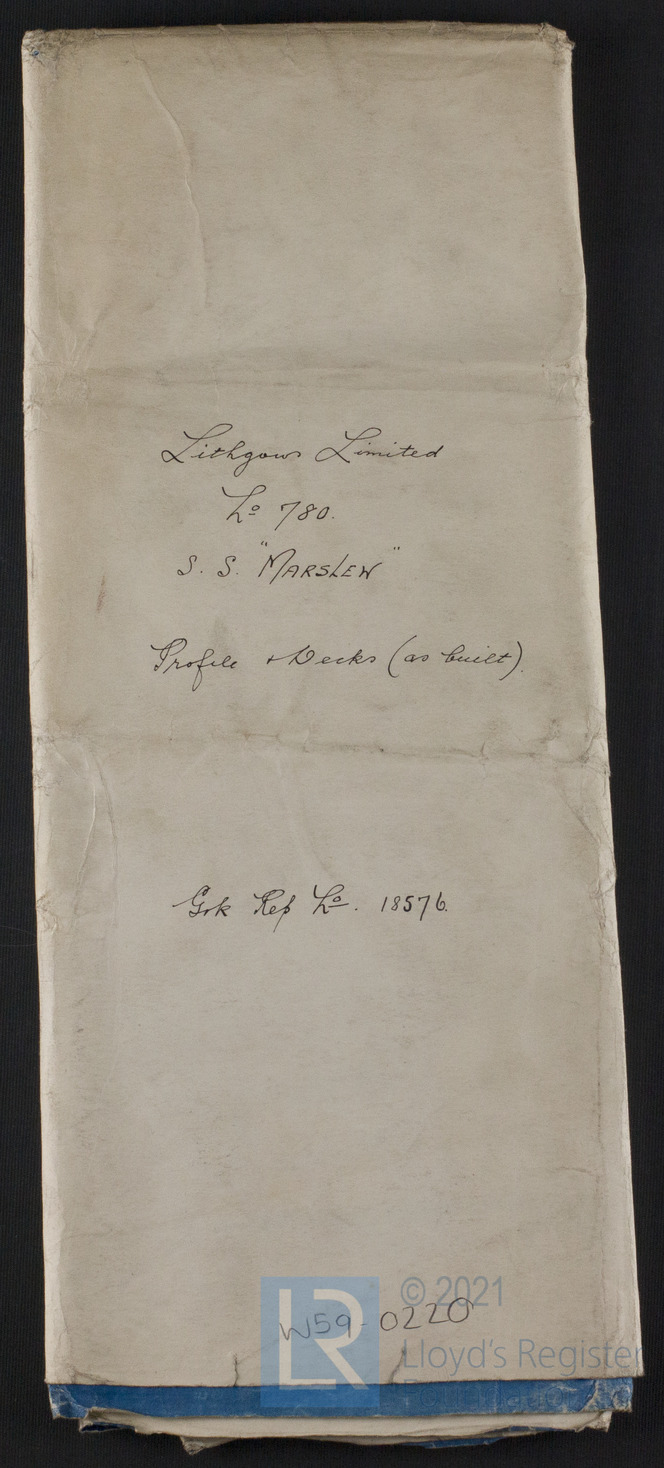 Lithgows Limited
No 780.
S. S. "MARSLEW"
Profile & Decks (as built).
Grk Rep No. 18576.
© 2021
W59-0220
LR
Lloyd's Register